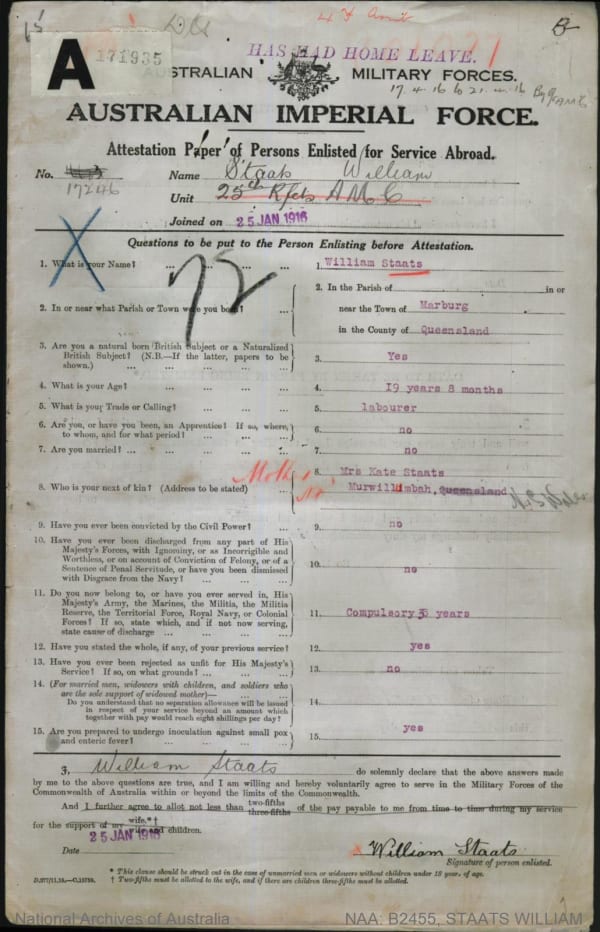 4 F Amb
B
A 171935
HAS HAD HOME LEAVE.
AUSTRALIAN MILITARY FORCES.
17.4.16 to 21.4.16
AUSTRALIAN IMPERIAL FORCE.
Attestation Paper of Persons Enlisted for Service Abroad.
No. 17246 Name Staats William
Unit 25th Rfts A.M.C
Joined on 25 JAN 1916
Questions to be put to the Person Enlisting before Attestation.
72
1. What is your Name? ... ... ... ... 1. William Staats
2. In or near what Parish or Town were you born? 2. In the Parish of in or
near the Town of Marburg
in the County of Queensland
3. Are you a natural born British Subject or a Naturalized
British Subject? (N.B.—If the latter, papers to be
shown.) ... ... ... ... 3. Yes
4. What is your Age? ... ... ... ... 4. 19 years 8 months
5. What is your Trade or Calling? ... ... ... 5. labourer
6. Are you, or have you been, an Apprentice? If so, where,
to whom, and for what period? ... ... ... 6. no
7. Are you married? ... ... ... ... 7. no
8. Who is your next of kin? (Address to be stated) 8. Mrs Kate Staats
Mother
Murwillimbah, Queensland
9. Have you ever been convicted by the Civil Power? ... 9. no
10. Have you ever been discharged from any part of His
Majesty's Forces, with Ignominy, or as Incorrigible and
Worthless, or on account of Conviction of Felony, or of a
Sentence of Penal Servitude, or have you been dismissed
with Disgrace from the Navy? ... ... ... 10. no
11. Do you now belong to, or have you ever served in, His
Majesty's Army, the Marines, the Militia, the Militia
Reserve, the Territorial Force, Royal Navy, or Colonial
Forces? If so, state which, and if not now serving,
state cause of discharge ... ... ... 11. Compulsory years
12. Have you stated the whole, if any, of your previous service? 12. yes
13. Have you ever been rejected as unfit for His Majesty's
Service? If so, on what grounds? ... ... 13. no
14. (For married men, widowers with children, and soldiers who
are the sole support of widowed mother)—
Do you understand that no separation allowance will be issued
in respect of your service beyond an amount which
together with pay would reach eight shillings per day? 14.
15. Are you prepared to undergo inoculation against small pox
and enteric fever? ... ... ... ... 15. yes
I, William Staats do solemnly declare that the above answers made
by me to the above questions are true, and I am willing and hereby voluntarily agree to serve in the Military Forces of the
Commonwealth of Australia within or beyond the limits of the Commonwealth.
And I further agree to allot not less than two-fifths three-fifths of the pay payable to me from time to time during my service
for the support of my wife.*† wife and children.
25 JAN 1916
Date
William Staats
Signature of person enlisted.
* This clause should be struck out in the case of unmarried men or widowers without children under 18 year of age.
D.277/11.15.—C.15738. † Two-fifths must be allotted to the wife, and if there are children three-fifths must be allotted.
National Archives of Australia
NAA: B2455, STAATS WILLIAM